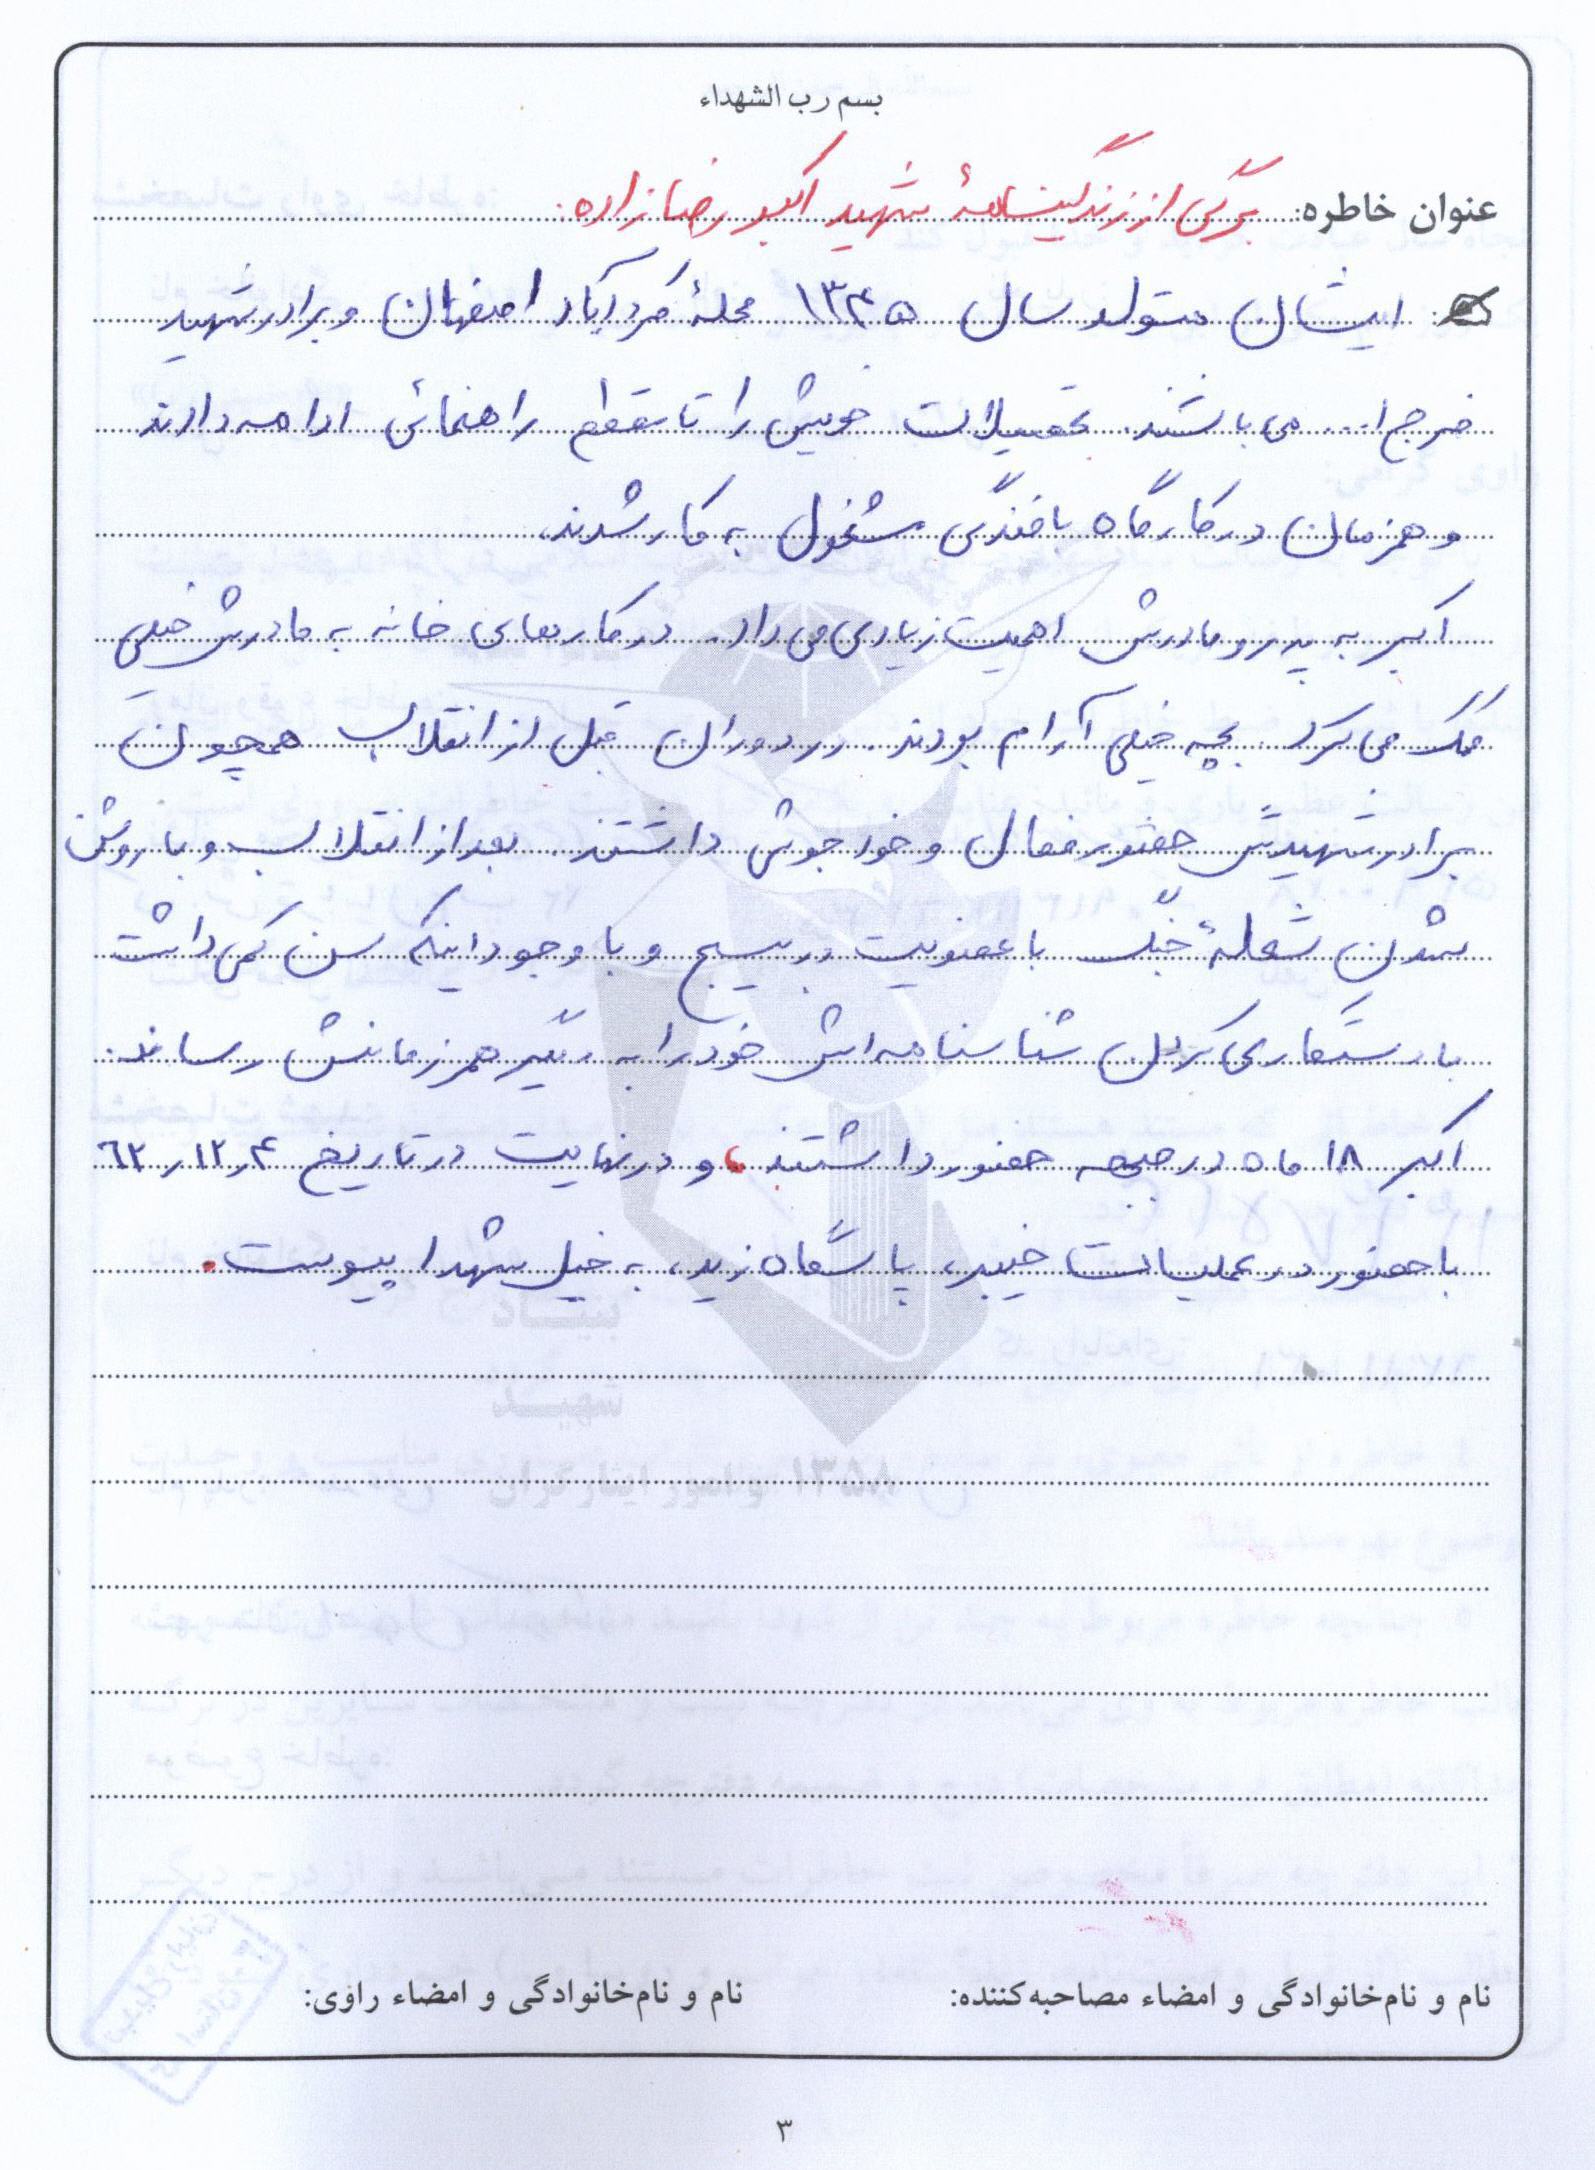 بسم رب الشهداء
عنوان خاطره: برگی از زندگینامهٔ شهید اکبر رضازاده:
ایشان متولد سال ۱۳۴۵ محلهٔ کردآباد اصفهان و برادر شهید
فرج ا... می باشند. تحصیلات خویش را تا مقطع راهنمائی ادامه دادند
و همزمان در کارگاه بافندگی مشغول به کار شدند.
اکبر به پدر و مادرش اهمیت زیادی می داد. در کارهای خانه به مادرش خیلی
کمک می کرد. بچه خیلی آرام بودند. در دوران قبل از انقلاب همچون
برادر شهیدش حضور فعال و خودجوش داشتند. بعد از انقلاب و با روشن
شدن شعلهٔ جنگ با عضویت در بسیج و با وجود اینکه سن کمی داشت
با دستکاری کردن شناسنامه اش خود را به دیگر همرزمانش رساند.
اکبر ۱۸ ماه در جبهه حضور داشتند، و در نهایت در تاریخ ۶۲٫۱۲٫۴
با حضور در عملیات خیبر، پاسگاه زید، به خیل شهدا پیوست.
نام و نام‌خانوادگی و امضاء مصاحبه‌کننده: نام و نام‌خانوادگی و امضاء راوی:
۳